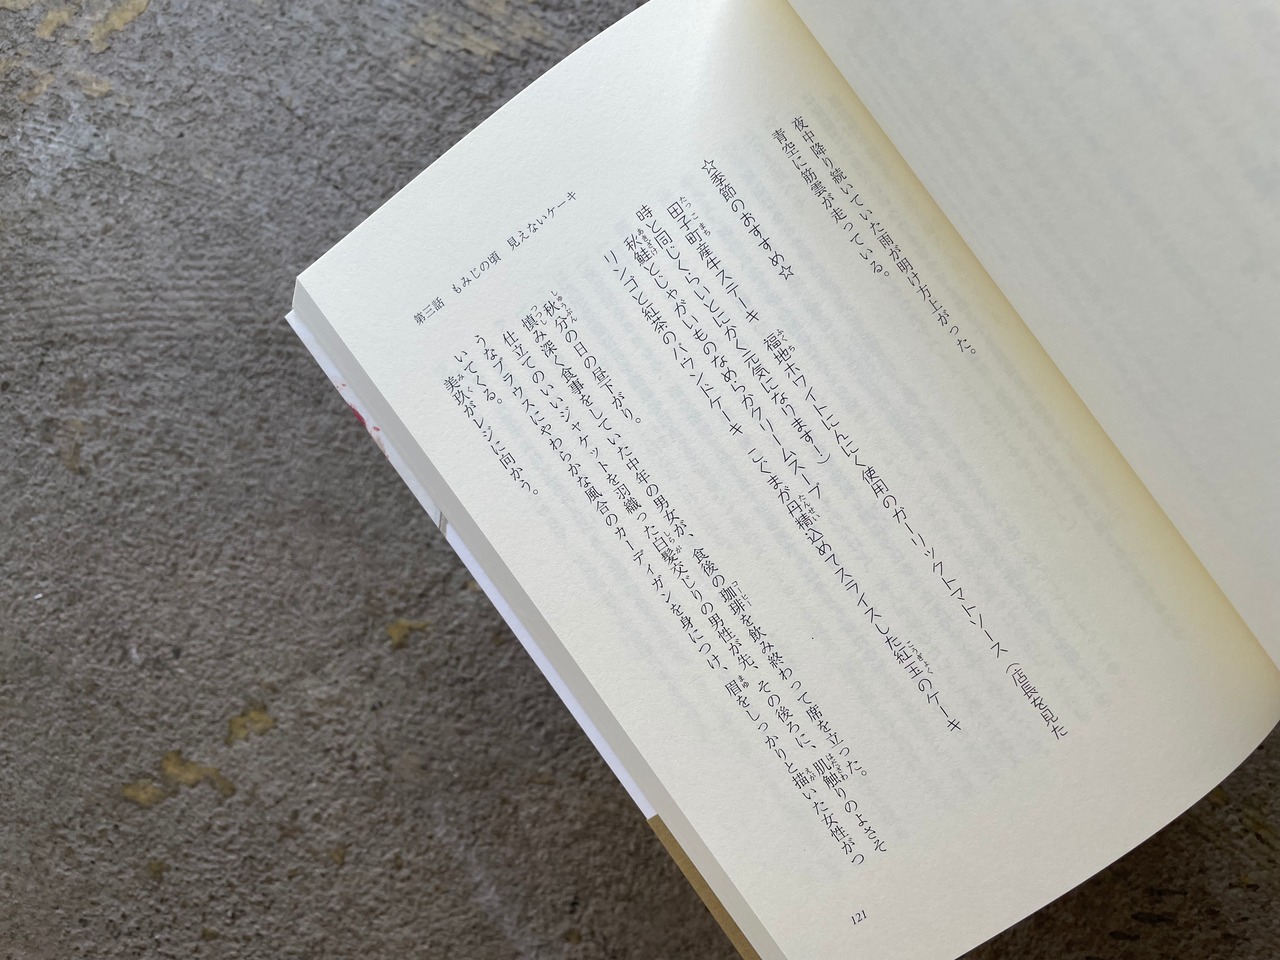 夜中降り続いていた雨が明け方上がった。
青空に筋雲が走っている。
☆季節のおすすめ☆
田子町産牛ステーキ　福地ホワイトにんにく使用のガーリックトマトソース（店長を見た
時と同じくらいとにかく元気になります！）
秋鮭とじゃがいものなめらかクリームスープ
リンゴと紅茶のパウンドケーキ　こぐまが丹精込めてスライスした紅玉のケーキ
秋分の日の昼下がり。
慎み深く食事をしていた中年の男女が、食後の珈琲を飲み終わって席を立った。
仕立てのいいジャケットを羽織った白髪交じりの男性が先、その後ろに、肌触りのよさそ
うなブラウスにやわらかな風合のカーディガンを身につけ、眉をしっかりと描いた女性がつ
いてくる。
美玖がレジに向かう。
第三話　もみじの頃　見えないケーキ
121